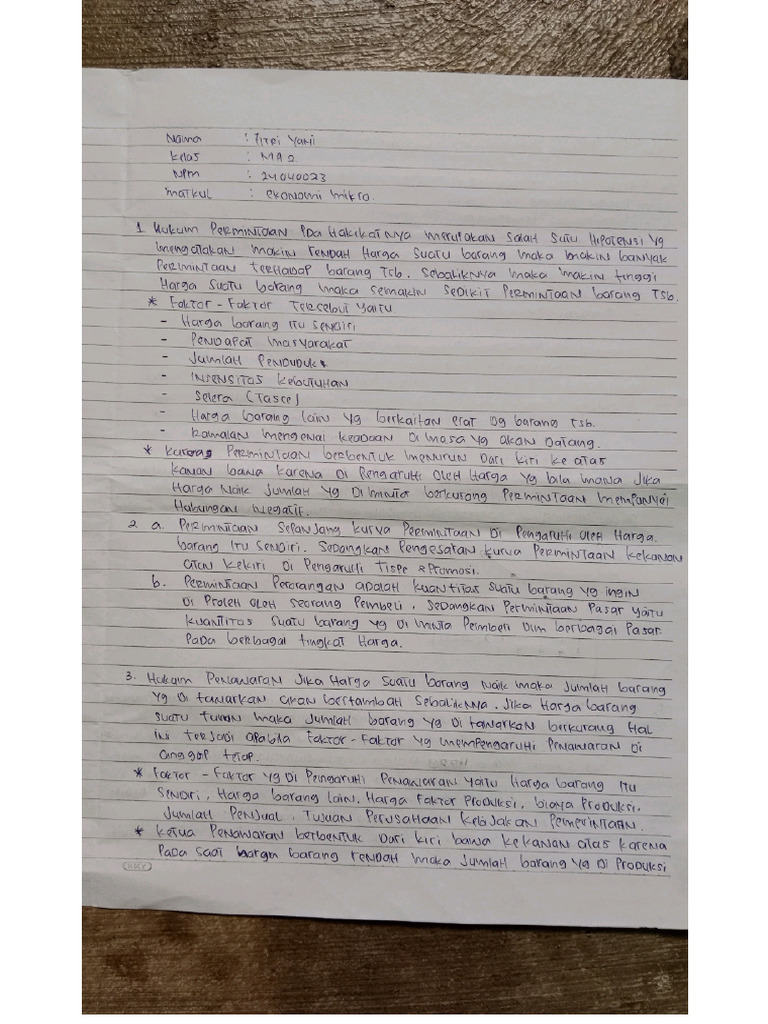 Nama : Fitri Yanti
Kelas : MA 2
NPM : 24040023
Matkul : ekonomi mikro.
1. Hukum Permintaan Pda Hakikatnya merupakan salah satu Hipotensi yg
mengatakan makin rendah Harga suatu barang maka makin banyak
Permintaan terhadap barang Tsb. Sebaliknya maka makin tinggi
Harga suatu barang maka semakin sedikit Permintaan barang Tsb.
* Faktor - Faktor Tersebut yaitu
- Harga barang itu sendiri
- Pendapat masyarakat
- Jumlah Penduduk
- Insensitas Kebutuhan
- Selera (Tasce)
- Harga barang lain yg berkaitan erat dg barang Tsb.
- Ramalan mengenai keadaan di masa yg akan datang.
* Kurang Permintaan berbentuk menurun dari kiri ke atas
kanan bawa karena di Pengaruhi oleh Harga yg bila mana jika
Harga Naik jumlah yg diminta berkurang Permintaan mempunyai
Hubungan Negatif.
2. a. Permintaan Sepanjang kurva Permintaan di Pengaruhi oleh Harga.
barang itu sendiri. Sedangkan Pengesatan kurva Permintaan kekanan
atau kekiri di Pengaruhi &Promosi.
b. Permintaan Perorangan adalah kuantitas suatu barang yg ingin
di Proleh oleh seorang Pembeli. Sedangkan Permintaan Pasar yaitu
kuantitas suatu barang yg di minta Peimberi dlm berbagai Pasar
Pada berbagai tingkat Harga.
3. Hukum Penawaran Jika Harga suatu barang Naik maka Jumlah barang
yg di tawarkan akan bertambah Sebaliknya. Jika Harga barang
suatu turun maka Jumlah barang yg di tawarkan berkurang Hal
ini terjadi apabila Faktor - Faktor yg mempengaruhi Penawaran di
anggap tetap.
* Faktor - Faktor yg di Pengaruhi Penawaran yaitu Harga barang itu
sendiri, Harga barang lain. Harga Faktor Produksi, biaya Produksi.
Jumlah Penjual, Tujuan Perusahaan Kebijakan Pemerintaan.
* Ketua Penawaran berbentuk dari kiri bawa kekanan atas karena
Pada saat barang rendah maka jumlah barang yg di Produksi